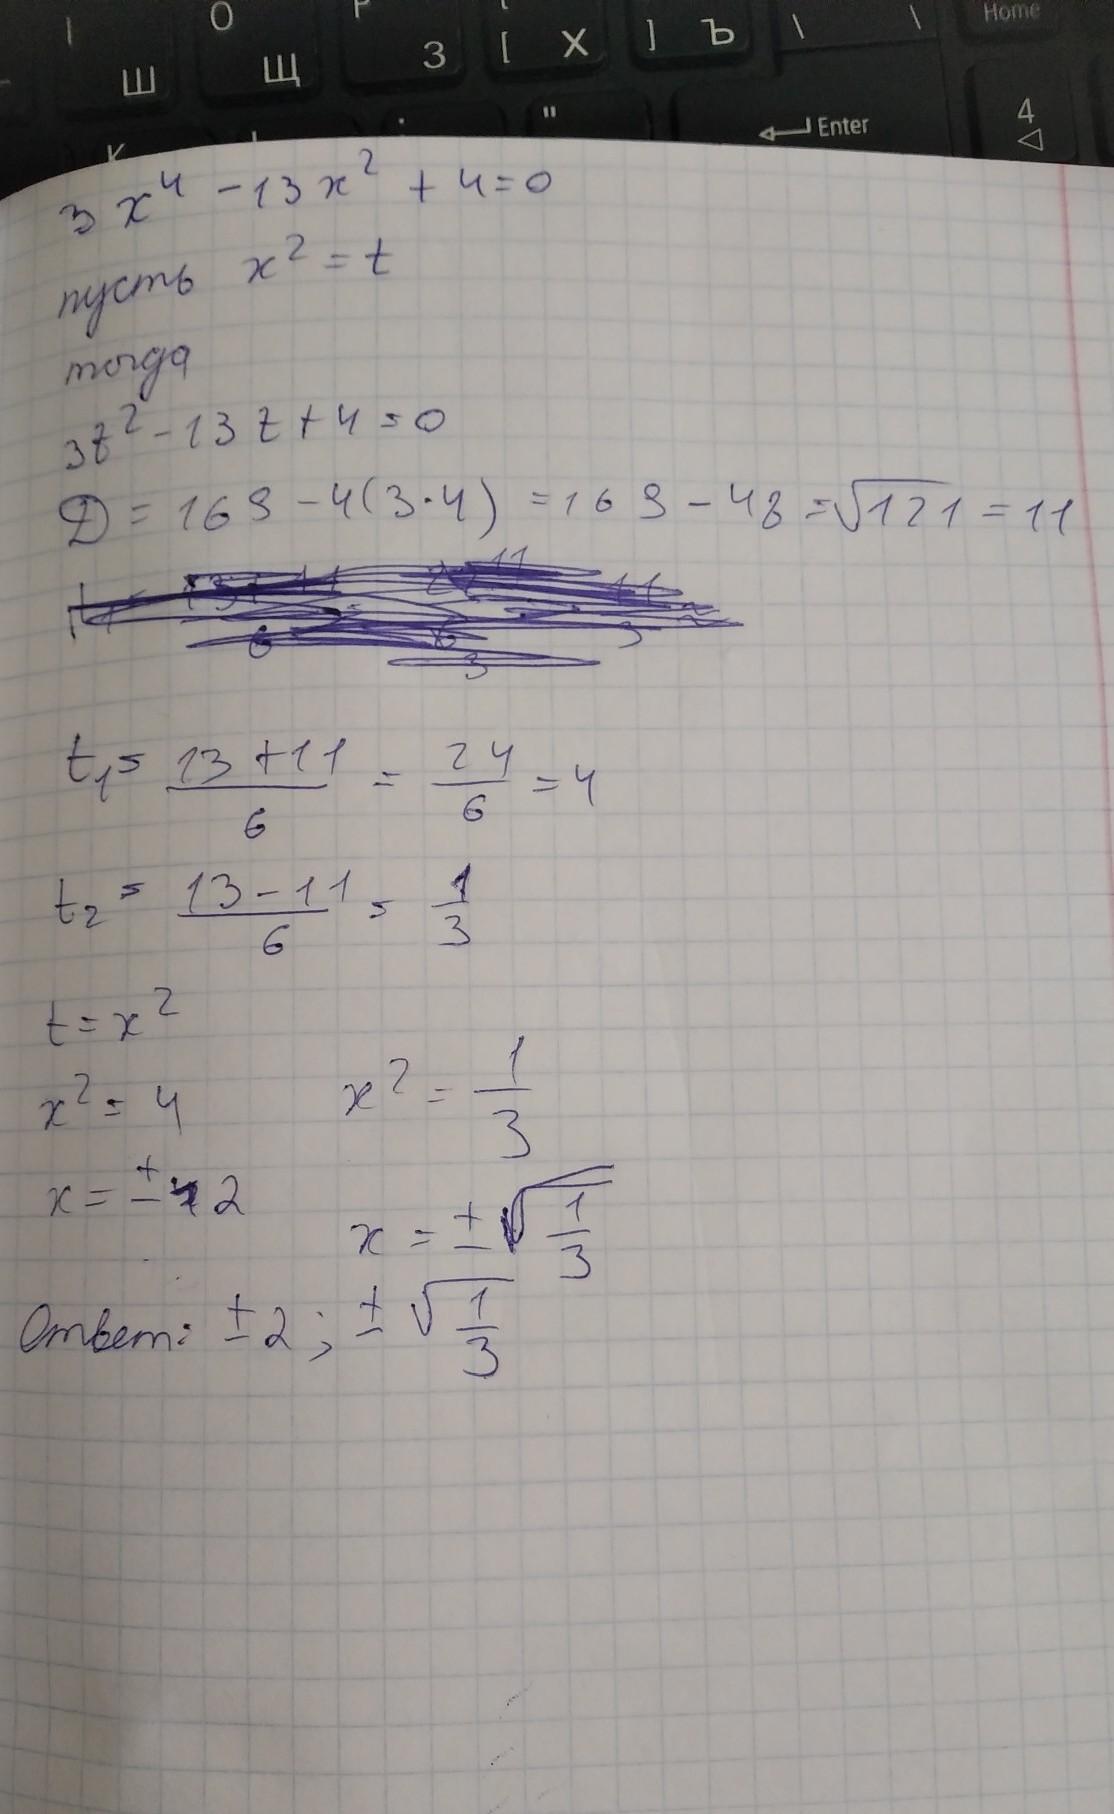 О Р
Ш Щ З [ Х ] Ъ \ \ Home
К " Enter 4
3x⁴ - 13x² + 4 = 0
пусть x² = t
тогда
3t² - 13t + 4 = 0
D = 169 - 4(3·4) = 169 - 48 = √121 = 11
t₁ = (13 + 11)/6 = 24/6 = 4
t₂ = (13 - 11)/6 = 1/3
t = x²
x² = 4 x² = 1/3
x = ± 2 x = ± √(1/3)
Ответ: ± 2 ; ± √(1/3)